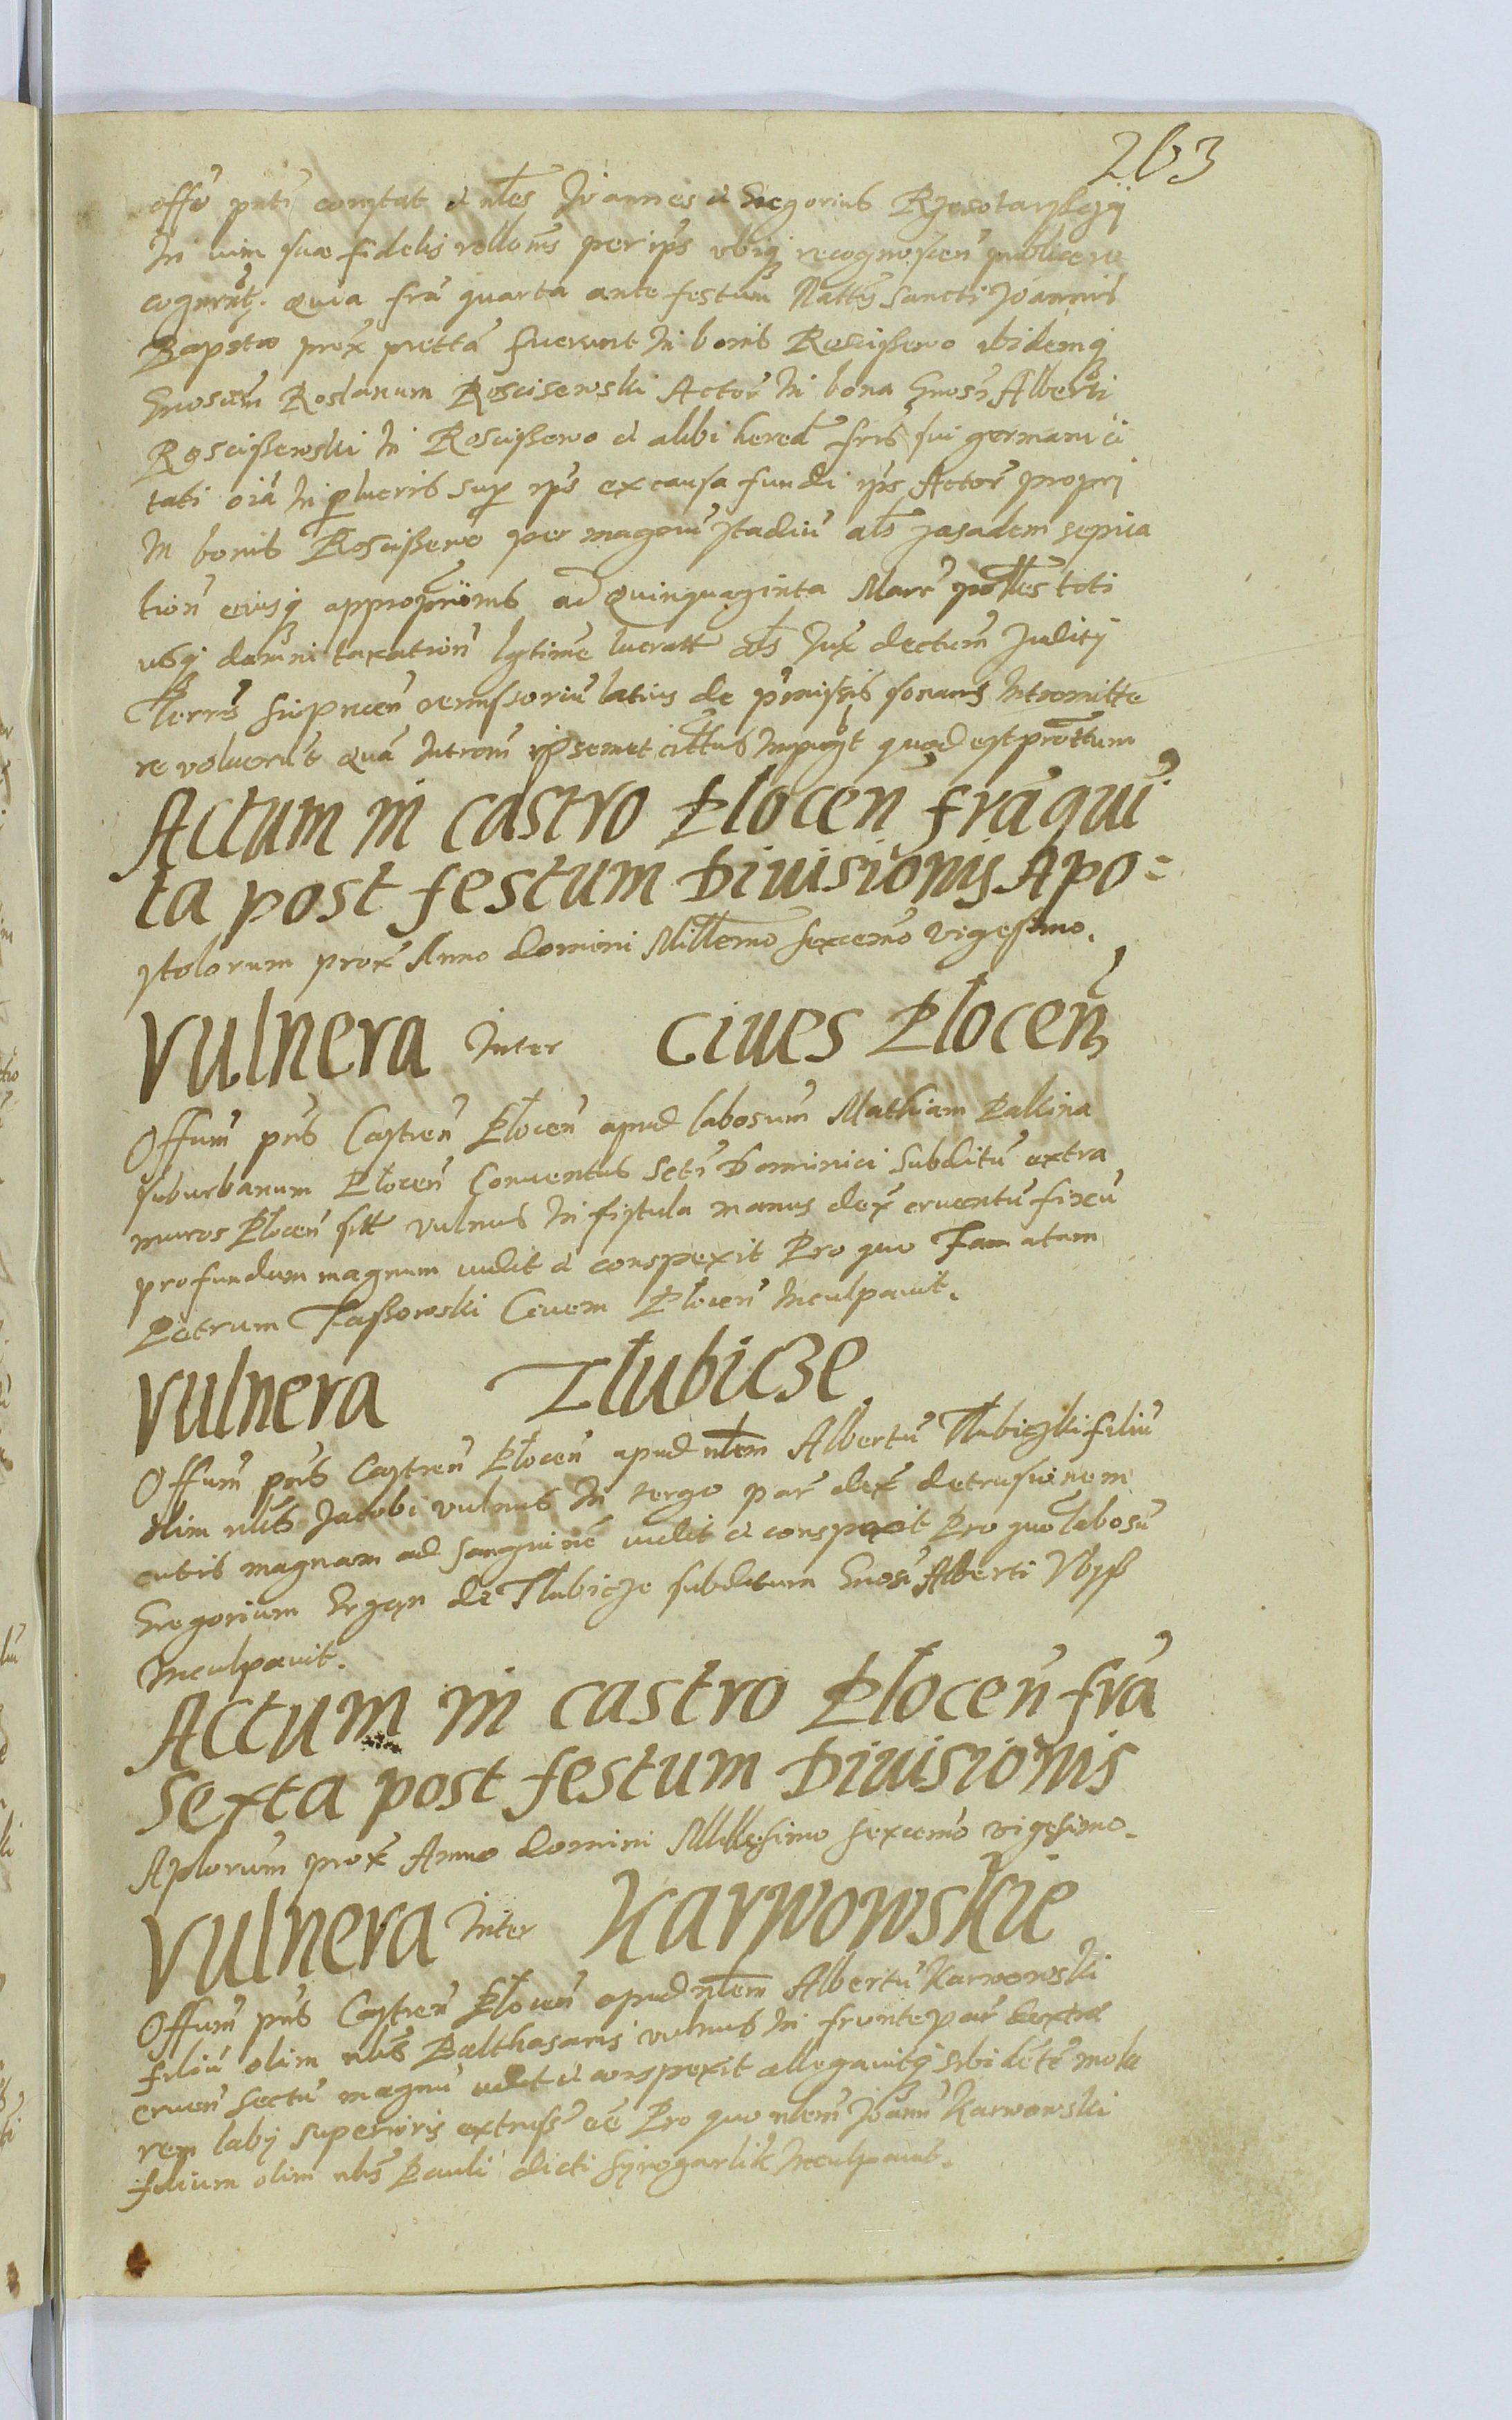 263
offo pnti comptat et nbles Joannes et Gregorius Rzeszotarskyij
In vim suae fidelis rellonis per ips ubiq recognoscen publice re
cognrut. Quia fra quarta ante festum Nattis Sancti Joannis
Baptae prox pretta fuerunt In bonis Roscissewo ibidemq
Gnosum Roslanum Roscisewski Actor In bona Gnosi Alberti
Roscissewski In Roscissewo et alibi hered fris sui germani ci
tati oia In lucris sup ips ex causa fundi ips Actor propri
In bonis Roscissewo per magnu stadiu als zasadem sepiia
tion eiusq appropriionis ad Quinquaginta Marc pollles toti
usq damni taxation lgtime lucratt als Jux dectum Juditij
Terris Sieprcen remissoriu latius de pmissis sonans Intromitte
re voluerut Qua Introm ipsemet cittus Impugt quod est prottum
Actum in castro Płocen fra qui
ta post festum Diuisionis Apo=
stolorum prox Anno Domini Millemo sexcemo vigesimo.
Vulnera Inter Ciues Płocen
Offum pns Castren Płocen apud labosum Mathiam Palkina
suburbanum Płocen Conuentus Scti Dominici subditu extra
muros Płocen sitt vulnus In fistula manus dex cruentu fixu
profundum magnum vidit et conspexit Pro quo Famatum
Petrum Fassowski Ciuem Płocen Inculpauit.
Vulnera Tłubicze
Offum pns Castren Płocen apud nblem Albertu Tłubiczki filiu
olim nblis Jacobi vulnus In tergo par dex detrusionem
cutis magnam ad sanguine vidit et conspexit Pro quo labosu
Gregorium de Tłubicze subditum Gnosi Alberti
Inculpauit.
Actum in castro Płocen fra
sexta post festum Diuisionis
Aplorum prox Anno Domini Millesimo sexcemo vigesimo.
Vulnera Inter Karwowskie
Offum pns Castren Płocen apud nblem Albertu Karwowski
filiu olim nblis Balthasaris vulnus In fronte par dextra
cruen sectu magnu vidit et conspexit allegauitq sibi dete mola
rem labij superioris extruss ee Pro quo nblem Joann Karwowski
filium olim nblis Pauli dicti Syrogarlik Inculpauit.